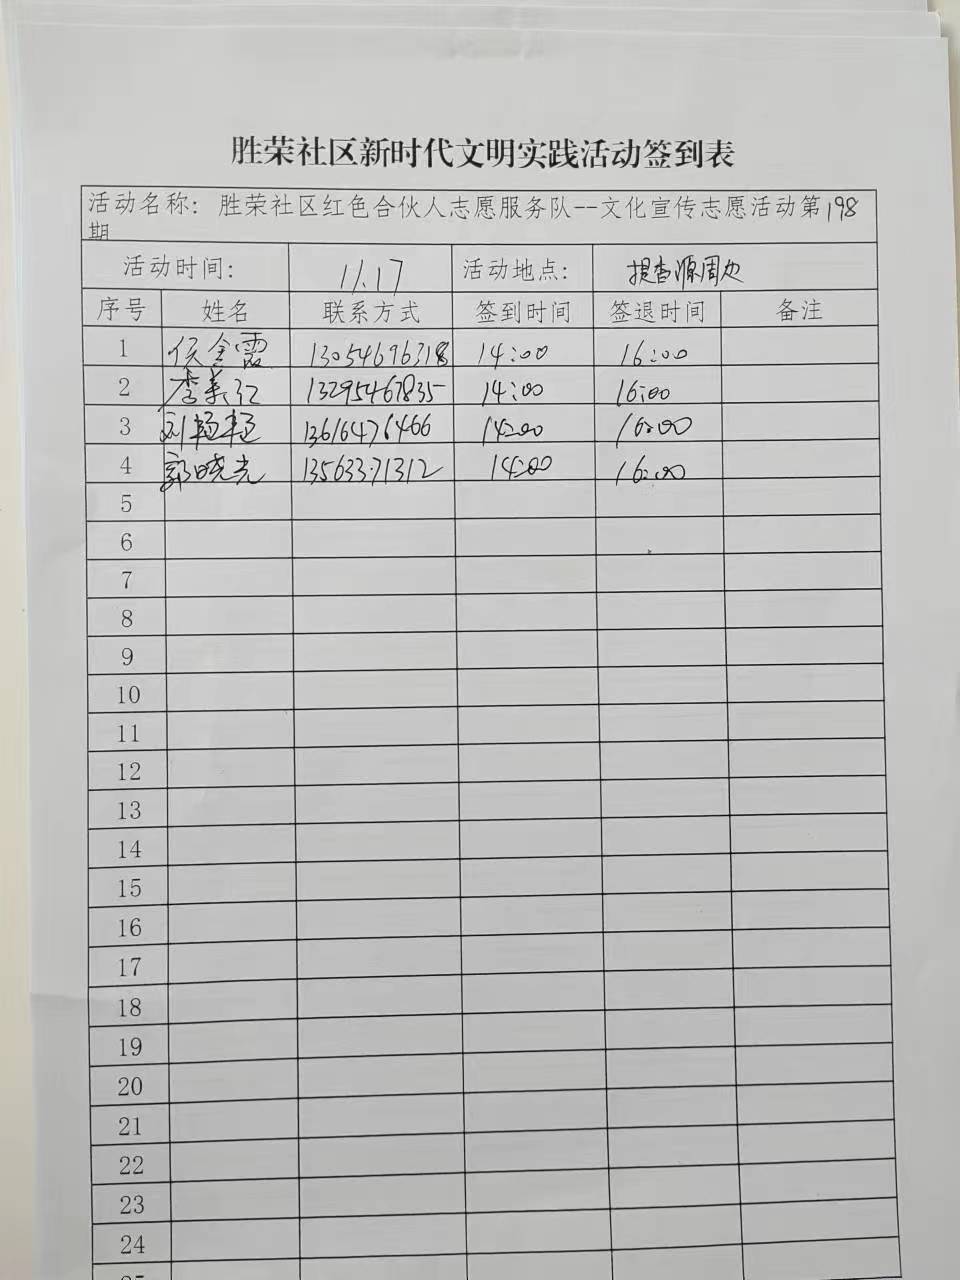 胜荣社区新时代文明实践活动签到表
活动名称：胜荣社区红色合伙人志愿服务队--文化宣传志愿活动第198
期
活动时间： 11.17 活动地点： 提香源周边
序号 姓名 联系方式 签到时间 签退时间 备注
1 侯金霞 13054696318 14:00 16:00
2 李美红 13295467835 14:00 16:00
3 刘 13616476466 14:00 16:00
4 郭晓光 13563371312 14:00 16:00
5
6
7
8
9
10
11
12
13
14
15
16
17
18
19
20
21
22
23
24
25